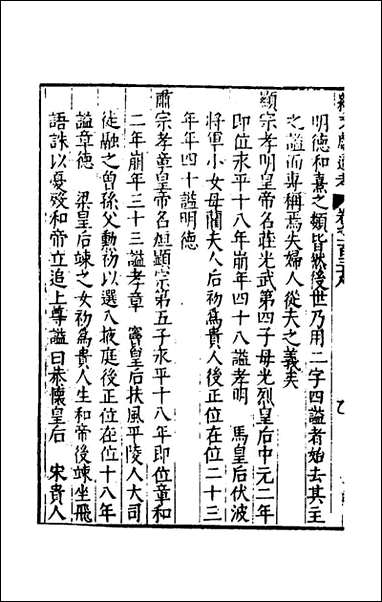 續文獻通考
明德和熹之類皆然後世乃用二字四謚者始去其主
之謚而專稱焉失婦人從夫之義矣
顯宗孝明皇帝名莊光武第四子母光烈皇后中元二年
即位永平十八年崩年四十八謚孝明　馬皇后伏波
將軍小女母藺夫人后初爲貴人後正位在位二十三
年年四十謚明德
肅宗孝章皇帝名炟顯宗第五子永平十八年即位章和
二年崩年三十三謚孝章　竇皇后扶風平陵人大司
徒融之曾孫父勳初以選入掖庭後正位在位十八年
謚章德　梁皇后竦之女初爲貴人生和帝後竦坐飛
語誅以憂歿和帝立追上尊謚曰恭懷皇后　宋貴人